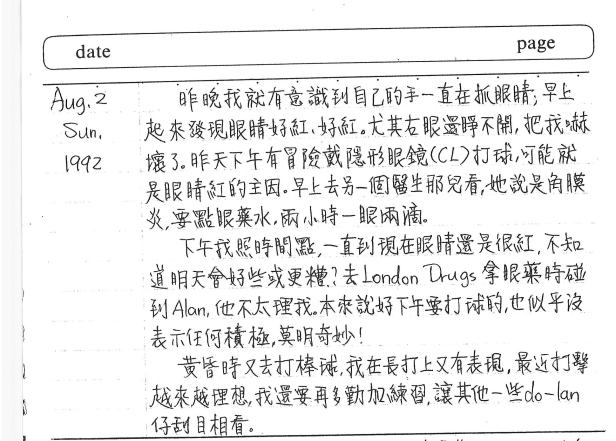 date
page
Aug. 2
Sun.
1992
昨晚我就有意識到自己的手一直在抓眼睛;早上
起來發現眼睛好紅、好紅。尤其右眼還睜不開,把我嚇
壞了。昨天下午有冒險戴隱形眼鏡(CL)打球,可能就
是眼睛紅的主因。早上去另一個醫生那兒看,她說是角膜
炎,要點眼藥水,兩小時一眼兩滴。
下午我照時間點,一直到現在眼睛還是很紅,不知
道明天會好些或更糟?去London Drugs 拿眼藥時碰
到Alan,他不太理我。本來說好下午要打球的,也似乎沒
表示任何積極,莫明奇妙!
黃昏時又去打棒球,我在長打上又有表現,最近打擊
越來越理想,我還要再多勤加練習,讓其他一些do-lan
仔刮目相看。